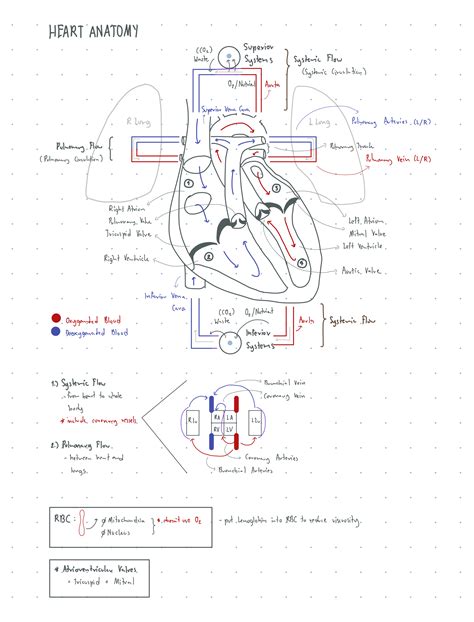 HEART ANATOMY
(CO₂)
Waste
Superior
Systems
Systemic Flow
(Systemic Circulation)
O₂/Nutrient
Aorta
Superior Vena Cava
R Lung
L Lung
Pulmonary Arteries (L/R)
Pulmonary Flow
(Pulmonary Circulation)
Pulmonary Trunk
Pulmonary Vein (L/R)
1
2
3
4
Right Atrium
Pulmonary Valve
Tricuspid Valve
Right Ventricle
Left Atrium
Mitral Valve
Left Ventricle
Aortic Valve
Inferior Vena
Cava
(CO₂)
Waste
O₂/Nutrient
Aorta
Systemic Flow
Inferior
Systems
Oxygenated Blood
Deoxygenated Blood
1) Systemic Flow
- from heart to whole
body
* include coronary vessels
2) Pulmonary Flow
- between heart and
lungs.
Bronchial Vein
Coronary Vein
RLu
RA
LA
RV
LV
LLu
Coronary Arteries
Bronchial Arteries
RBC :
Ø Mitochondria
Ø Nucleus
O₂
- put hemoglobin into RBC to reduce viscosity.
* Atrioventricular Valves
= Tricuspid + Mitral